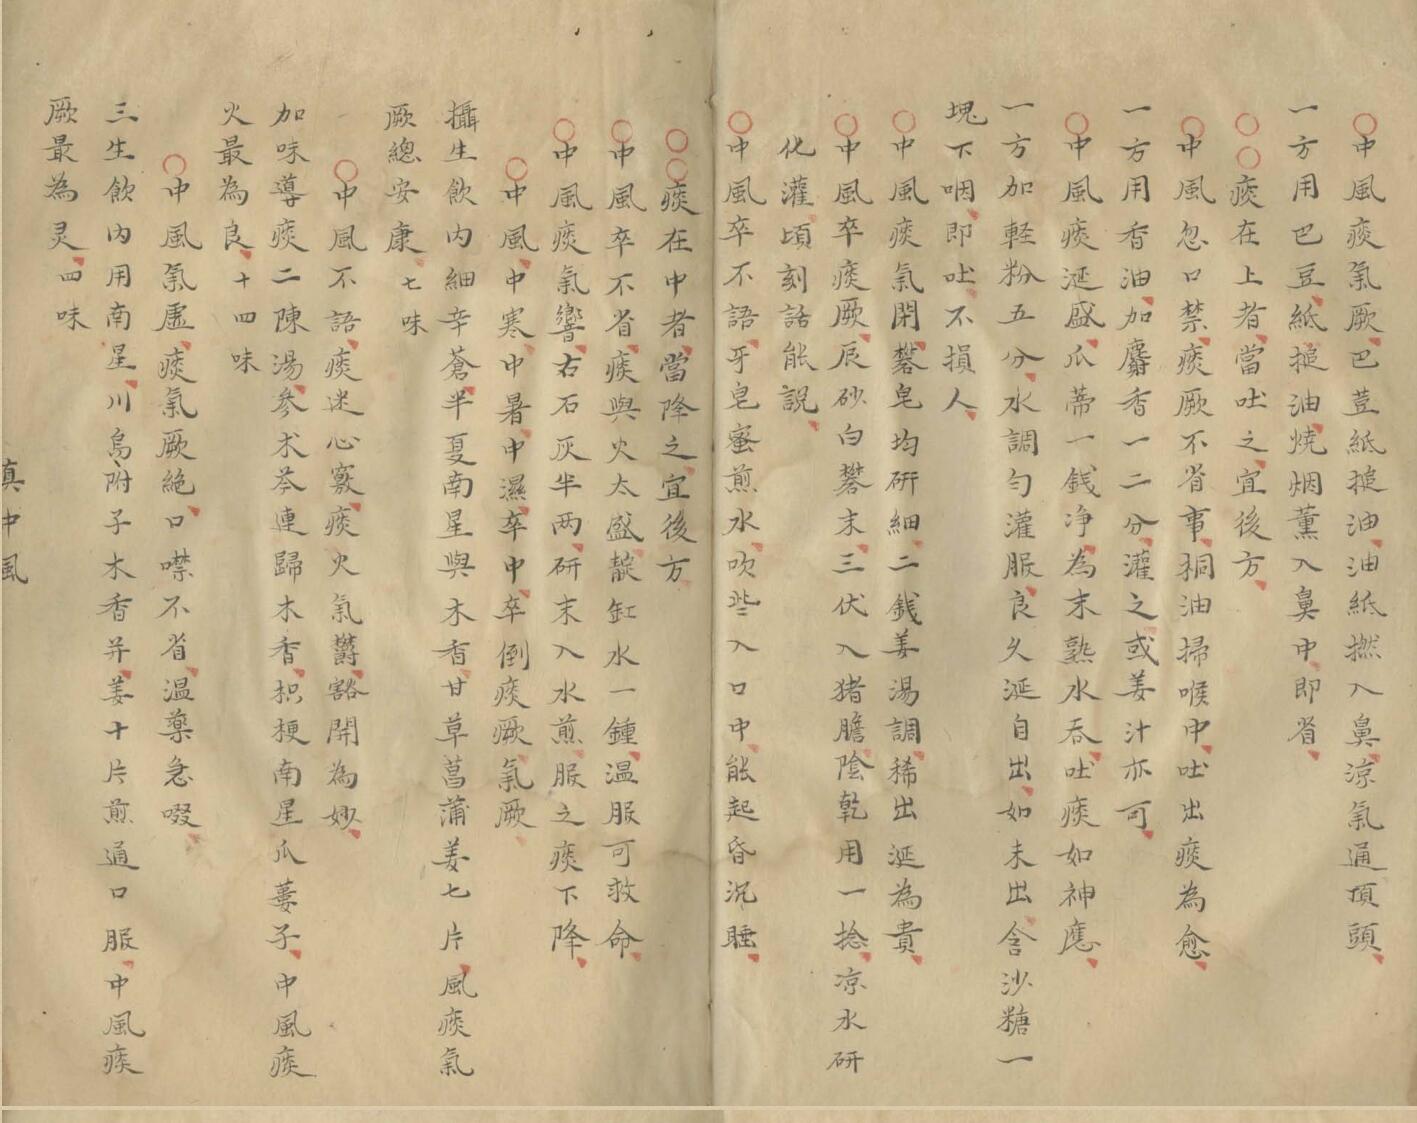 ○中風痰氣厥巴荳紙搥油油紙撚入鼻凉氣通頂頭
一方用巴豆紙搥油燒烟薰入鼻中即省
○○痰在上者當吐之宜後方
○中風忽口禁痰厥不省事桐油掃喉中吐出痰為愈
一方用香油加麝香一二分灌之或姜汁亦可
○中風痰涎盛瓜蒂一錢净為末熟水吞吐痰如神應
一方加軽粉五分水調勻灌服良久涎自出如未出含沙糖一
塊下咽即吐不損人
○中風痰氣閉礬皂均研細二錢姜湯調稀出涎為貴
○中風卒痰厥辰砂白礬末三伏入猪膽陰乾用一捻凉水研
化灌頃刻話能説
○中風卒不語牙皂蜜煎水吹些入口中能起昏沉睡
○○痰在中者當降之宜後方
○中風卒不省痰與火太盛靛缸水一鍾温服可救命
○中風痰氣響右石灰半两研末入水煎服之痰下降
○中風中寒中暑中濕卒中卒倒痰厥氣厥
攝生飲内細辛蒼半夏南星與木香甘草菖蒲姜七片風痰氣
厥總安康七味
○中風不語痰迷心竅痰火氣欝豁開為妙
加味導痰二陳湯參术芩連歸木香枳梗南星瓜蔞子中風痰
火最為良十四味
○中風氣虛痰氣厥絶口噤不省温藥急啜
三生飲内用南星川烏附子木香并姜十片煎通口服中風痰
厥最為灵四味
真中風